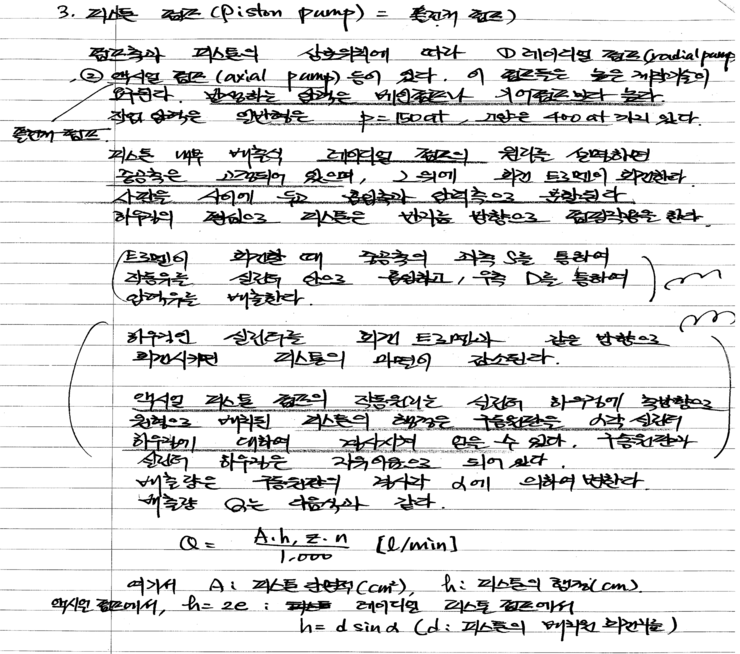 3. 피스톤 펌프 (Piston pump) = 플런저 펌프)
펌프축과 피스톤의 상호위치에 따라 ① 레이디얼 펌프 (radial pump)
, ② 액시얼 펌프 (axial pump) 등이 있다. 이 펌프들은 높은 제작기술이
요구된다. 발생하는 압력은 베인펌프나 기어펌프보다 높다.
작업 압력은 일반형은 p = 150 at, 고압은 400 at 까지 있다.
플런저 펌프.
피스톤 내부 배출식 레이디얼 펌프의 원리를 설명하면
중공축은 고정되어 있으며, 그 위에 회전 드럼이 회전한다.
사판을 사이에 두고 흡입측과 압력측으로 분할된다.
하우징의 편심으로 피스톤은 반지름 방향으로 펌핑작용을 한다.
드럼이 회전할 때 중공축의 좌측 S를 통하여
작동유를 실린더 안으로 흡입하고, 우측 D를 통하여
압력유를 배출한다.
하우징인 실린더를 회전 드럼과 같은 방향으로
회전시키면 피스톤의 마멸이 감소된다.
액시얼 피스톤 펌프의 작동원리는 실린더 하우징에 축방향으로
원형으로 배치된 피스톤의 행정은 구동원판을 α각 실린더
하우징에 대하여 경사시켜 얻을 수 있다. 구동원판과
실린더 하우징은 자유이음으로 되어 있다.
배출량은 구동원판의 경사각 α에 의하여 변한다.
배출량 Q는 다음식과 같다.
Q = A.h, z.n / 1,000 [ℓ/min]
여기서 A : 피스톤 단면적 (cm²), h : 피스톤의 행정 (cm).
액시얼 펌프에서, h = 2e : 레이디얼 피스톤 펌프에서
h = d sin α (d : 피스톤의 배치원 지름)